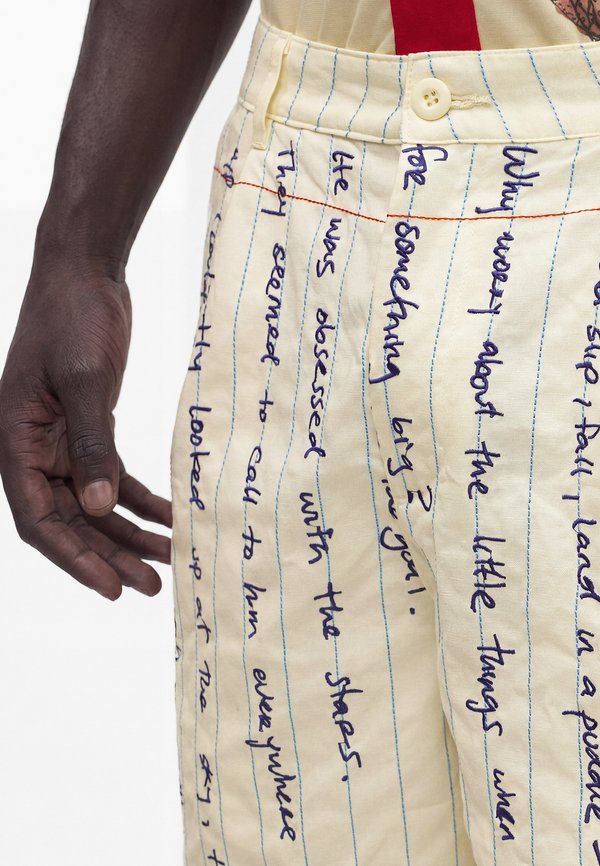 slip, fall, land in a puddle -
Why worry about the little things when
for something big?
in you!.
He was obsessed with the stars.
They seemed to call to him everywhere
constantly looked up at the sky,